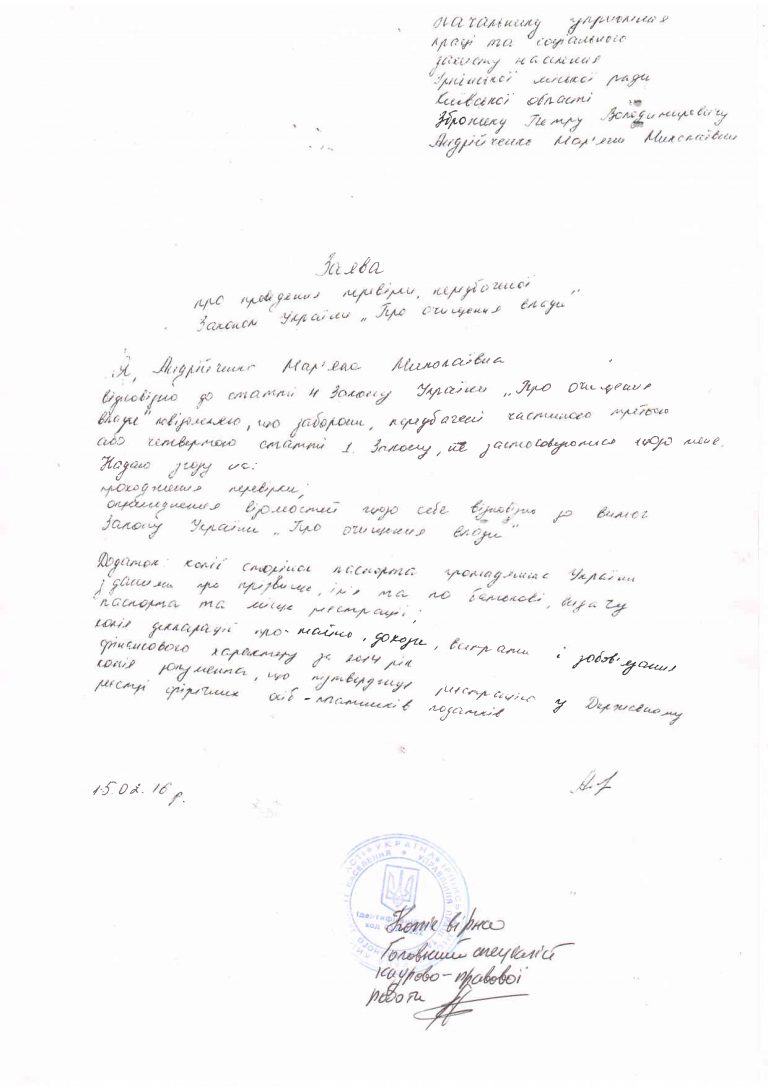 Начальнику управління
праці та соціального
захисту населення
Ірпінської міської ради
Київської області
Зброжеку Петру Володимировичу
Андрійченко Мар'яни Миколаївни
Заява
про проведення перевірки, передбаченої
Законом України „Про очищення влади"
Я, Андрійченко Мар'яна Миколаївна
відповідно до статті 4 Закону України „Про очищення
влади" повідомляю, що заборони, передбачені частиною третьою
або четвертою статті 1 Закону, не застосовуються щодо мене.
Надаю згоду на:
проходження перевірки;
оприлюднення відомостей щодо себе відповідно до вимог
Закону України „Про очищення влади"
Додаток: копії сторінок паспорта громадянина України
з даними про прізвище, ім'я та по батькові, видачу
паспорта та місце реєстрації;
копія декларації про майно, доходи, витрати і зобов'язання
фінансового характеру за 2014 рік
копія документа, що підтверджує реєстрацію у Державному
реєстрі фізичних осіб - платників податків
15.02.16 р.
УКРАЇНА
УПРАВЛІННЯ ПРАЦІ
НАСЕЛЕННЯ
Ідентифікаційний
код
Копія вірна
Головний спеціаліст
кадрово-правової
роботи